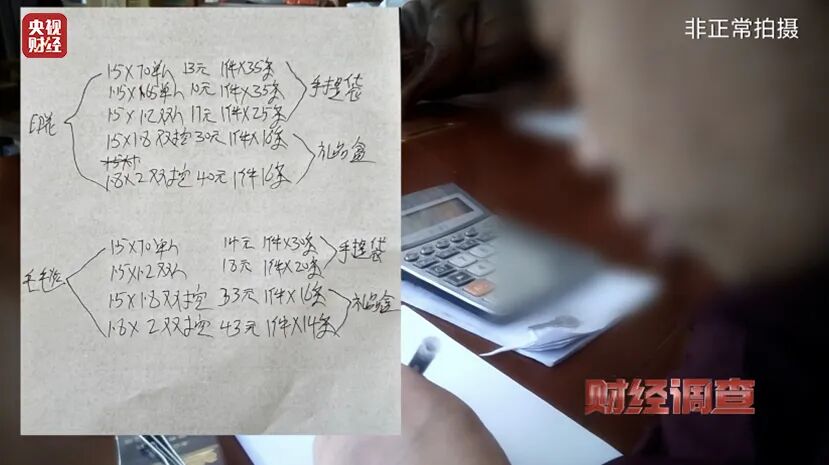 央视
财经
非正常拍摄
印花
15×70单人 13元 1件×35条
1.15×1.65单人 10元 1件×35条
15×1.2双人 17元 1件×25条
手提袋
15×1.8双控 30元 1件×16条
1.8×2双控 40元 1件16条
礼品盒
15×70单人 14元 1件×30条
15×1.2双人 18元 1件×20条
手提袋
15×1.8双控 33元 1件×16条
1.8×2双控 43元 1件×14条
礼品盒
财经调查